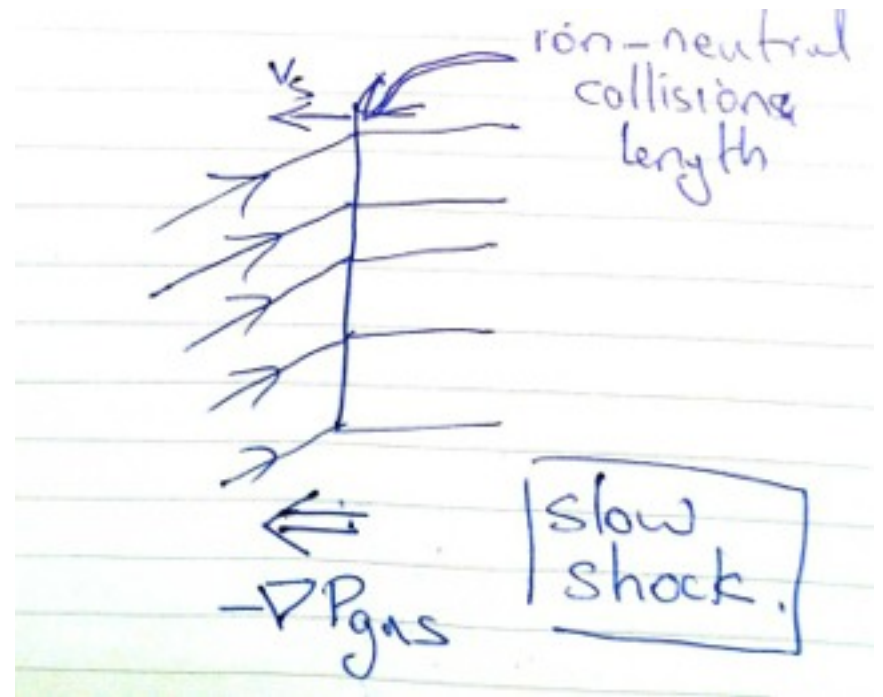 ion-neutral
Vs
collisional
length
-∇Pgas
slow
shock.